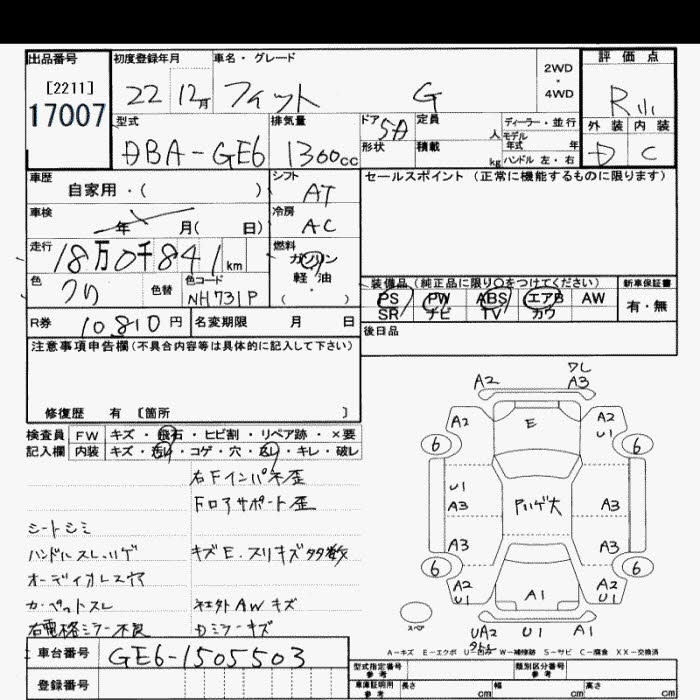 出品番号 初度登録年月 車名・グレード 2WD・4WD 評価点
[2211]
17007
22 12月 フィット G R
型式 排気量 ドア 定員 人 ディーラー・並行 外装 内装
DBA-GE6 1300cc 5D 形状 積載 kg モデル年式 年 ハンドル 左・右 D C
車歴 シフト セールスポイント(正常に機能するものに限ります)
自家用・( ) AT
車検 冷房
年 月( 日) AC
走行 燃料
18万0千841km ガソリン
軽油
・
( )
色 色替 色コード 装備品(純正品に限り〇をつけてください) 新車保証書
クロ NH731P PS PW ABS エアB AW 有・無
SR ナビ TV カワ
R券 10,810円 名変期限 月 日 後日品
注意事項申告欄(不具合内容等は具体的に記入して下さい)
修復歴 有 〔箇所 〕
検査員 FW キズ・飛石・ヒビ割・リペア跡・×要
記入欄 内装 キズ・汚れ・コゲ・穴・スレ・キレ・破レ
右Fインパネ歪
Fロアサポート歪
シートシミ
ハンドルスレ,ハゲ キズE.スリキズ多数
カーペットスレ 社外AWキズ
右電格ミラー不良 Dミラーキズ
車台番号 GE6-1505503
登録番号
ワレ
A2 A3
A2 E A2
U1
6 6
U1
A3 Pハゲ大 A3
A3 A3
6 6
A2 A2
U1 A1 U1
スペア
UA2 U1 A1
A-キズ E-エクボ U-凹み W-補修跡 S-サビ C-腐食 XX-交換済
型式指定番号 参考 類別区分番号 参考
車庫証明用 参考 長さ cm 幅 cm 高さ cm